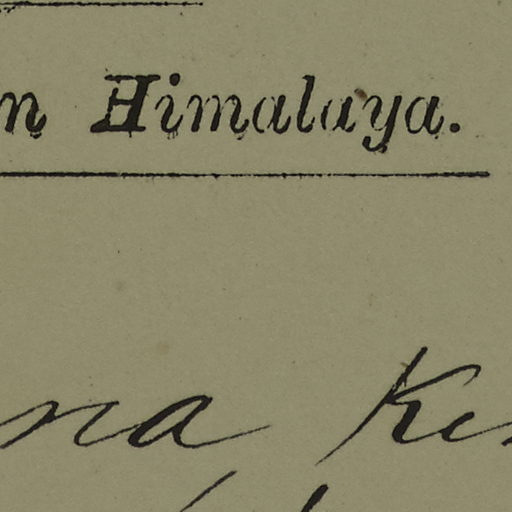 n Himalaya.
na Ke